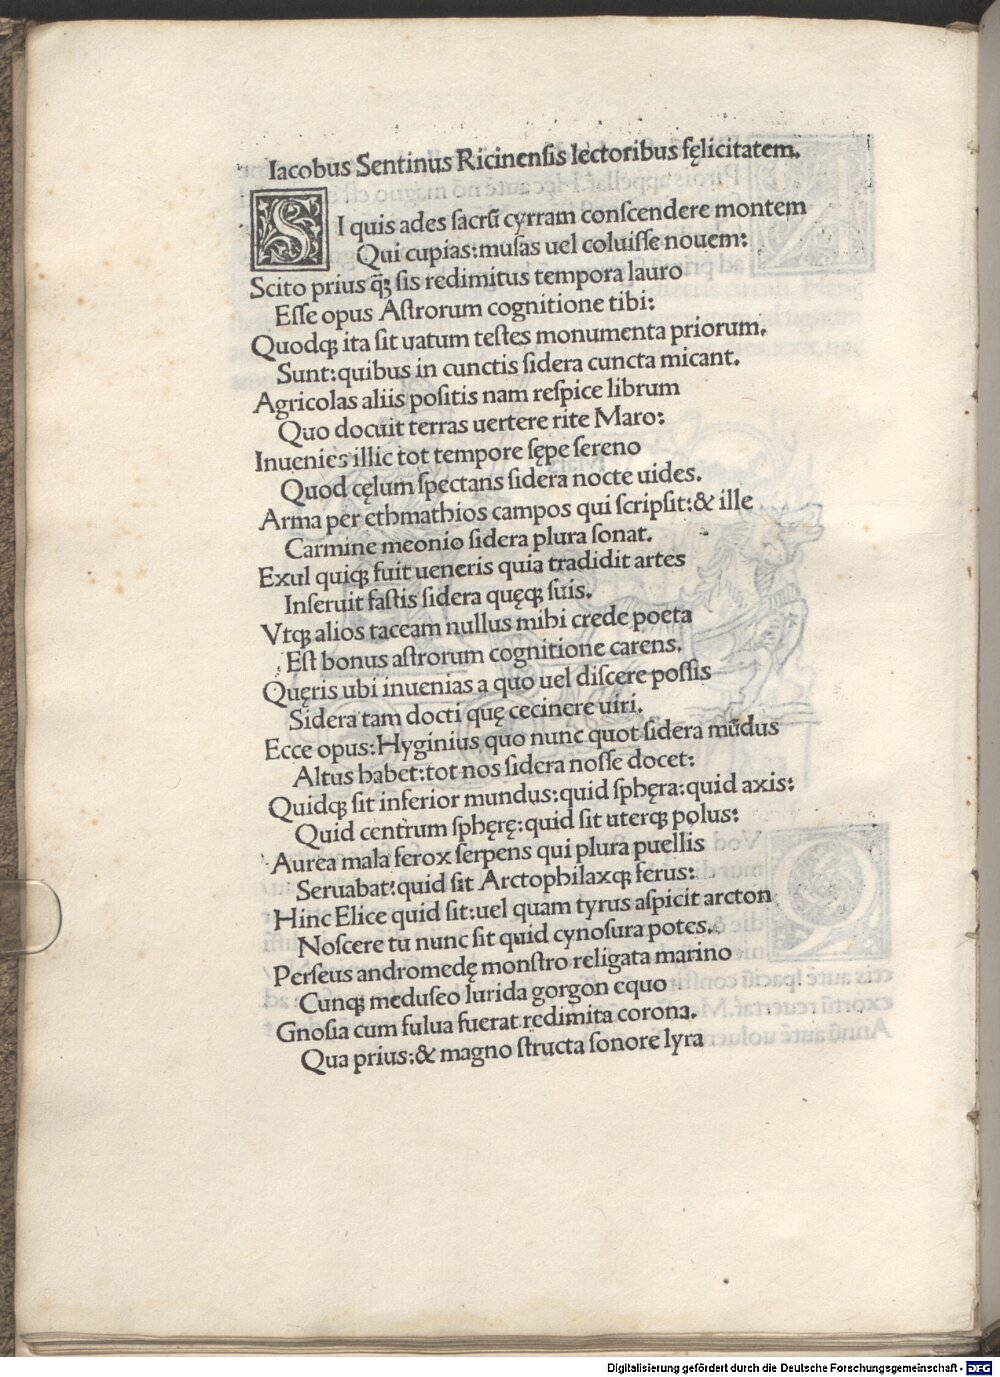 Iacobus Sentinus Ricinensis lectoribus fęlicitatem.
SI quis ades sacrū cyrram conscendere montem
Qui cupias:musas uel coluisse nouem:
Scito prius q̃ꝫ sis redimitus tempora lauro
Esse opus Astrorum cognitione tibi:
Quodqꝫ ita sit uatum testes monumenta priorum.
Sunt:quibus in cunctis sidera cuncta micant.
Agricolas aliis positis nam respice librum
Quo docuit terras uertere rite Maro:
Inuenies illic tot tempore sępe sereno
Quod cęlum spectans sidera nocte uides.
Arma per ethmathios campos qui scripsit:& ille
Carmine meonio sidera plura sonat.
Exul quiqꝫ fuit ueneris quia tradidit artes
Inseruit fastis sidera quęqꝫ suis.
Vtqꝫ alios taceam nullus mihi crede poeta
Est bonus astrorum cognitione carens.
Quęris ubi inuenias a quo uel discere possis
Sidera tam docti quę cecinere uiri.
Ecce opus:Hyginius quo nunc quot sidera mūdus
Altus habet:tot nos sidera nosse docet:
Quidqꝫ sit inferior mundus:quid sphęra:quid axis:
Quid centrum sphęrę:quid sit uterqꝫ polus:
Aurea mala ferox serpens qui plura puellis
Seruabat:quid sit Arctophilaxqꝫ ferus:
Hinc Elice quid sit:uel quam tyrus aspicit arcton
Noscere tu nunc sit quid cynosura potes.
Perseus andromedę monstro religata marino
Cunqꝫ meduseo lurida gorgon equo
Gnosia cum fulua fuerat redimita corona.
Qua prius:& magno structa sonore lyra
Digitalisierung gefördert durch die Deutsche Forschungsgemeinschaft - DFG